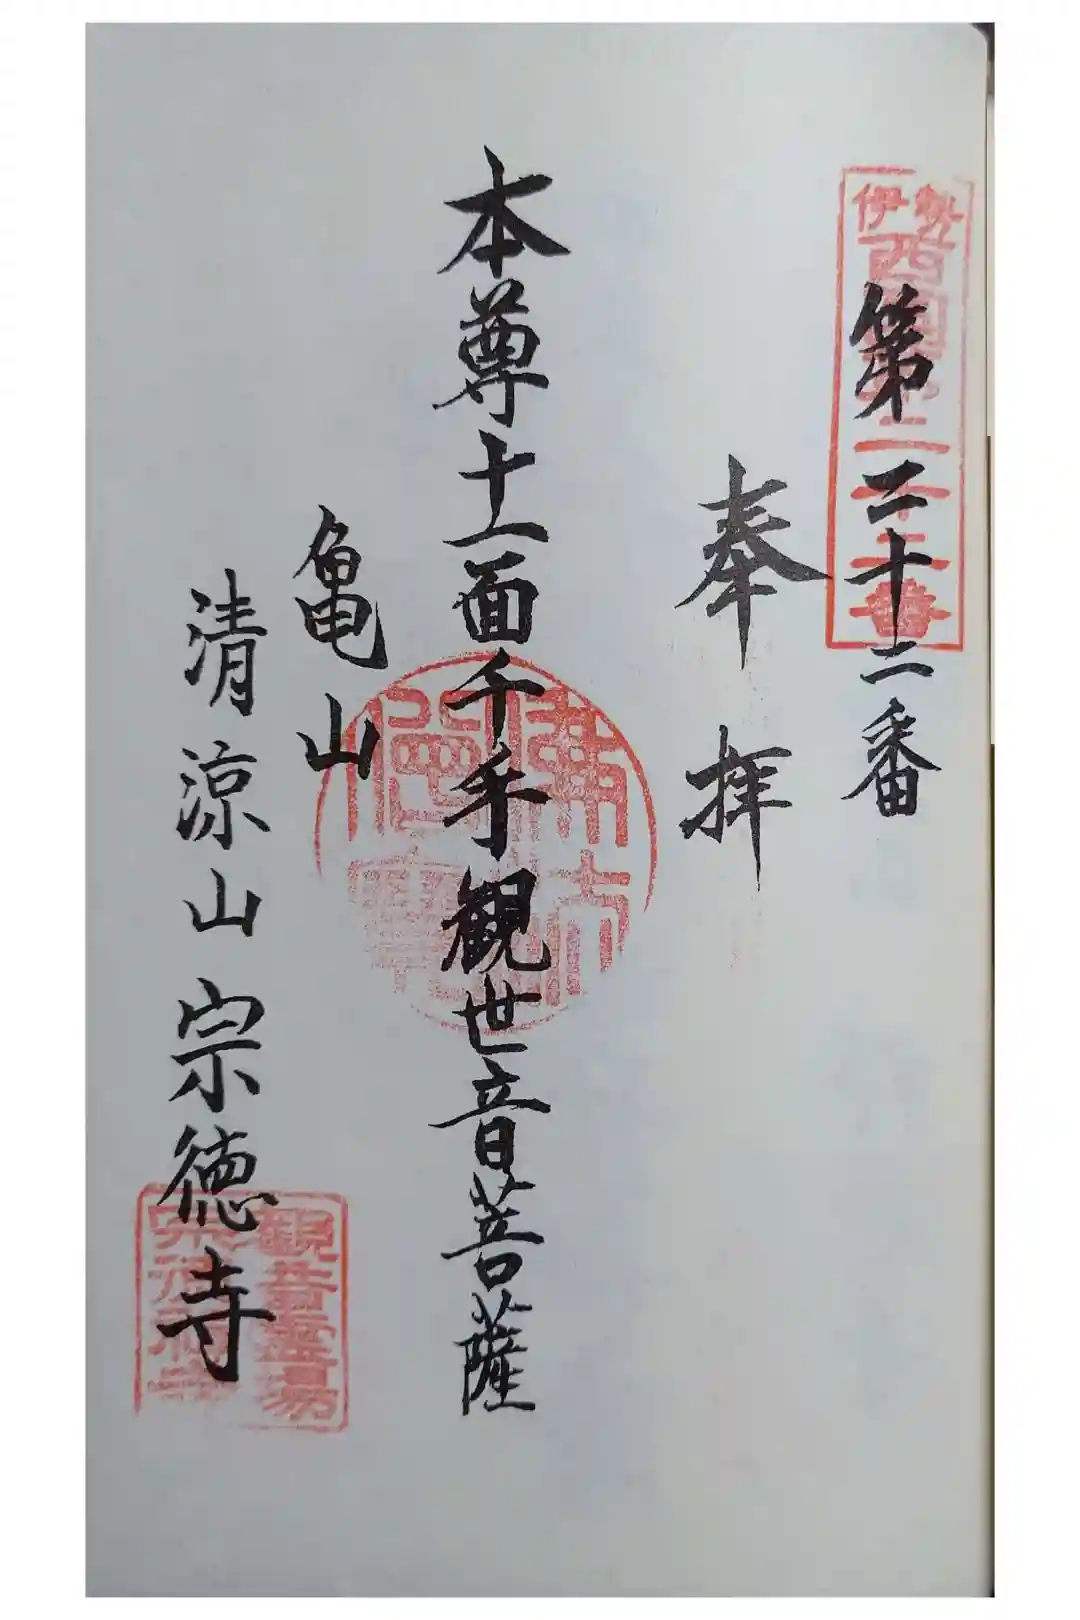 伊勢
西国第二十二番
第二十二番
奉拝
本尊十一面千手観世音菩薩
亀山
清涼山宗徳寺
観音霊場